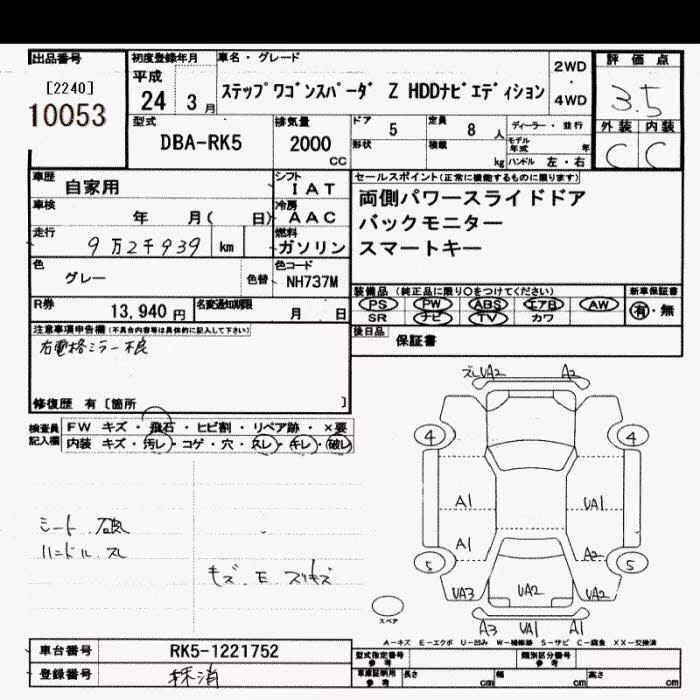 出品番号
[2240]
10053
初度登録年月
平成
24 3月
車名・グレード
ステップワゴンスパーダ Z HDDナビエディション
2WD
・
4WD
評価点
3.5
外装 内装
C C
型式
DBA-RK5
排気量
2000
CC
ドア 5
形状
定員 8 人
積載 kg
ディーラー・並行
モデル年式 年
ハンドル 左・右
車歴
自家用
シフト
IAT
車検 年 月( 日)
冷房
AAC
走行
9万2千939 km
燃料
ガソリン
色
グレー
色替
色コード
NH737M
R券
13,940 円
名変通知期限 月 日
セールスポイント(正常に機能するものに限ります)
両側パワースライドドア
バックモニター
スマートキー
装備品 (純正品に限り○をつけてください)
PS PW ABS エアB AW
SR ナビ TV カワ
新車保証書
有・無
後日品
保証書
注意事項申告欄(不具合内容等は具体的に記入して下さい)
右電格ミラー不良
修復歴 有〔箇所 〕
検査員
記入欄
FW キズ・飛石・ヒビ割・リペア跡・×要
内装 キズ・汚レ・コゲ・穴・スレ・キレ・破レ
シート
ハンドル スレ
キズ E スリキズ
ズレUA2 A2
4 4
A1 UA1
A1 A2
5 5
UA3 UA2 UA2
スペア
A3 UA1 A1
A-キズ E-エクボ U-凹み W-補修跡 S-サビ C-腐食 XX-交換済
車台番号
RK5-1221752
登録番号
抹消
型式指定番号
参考
類別区分番号
参考
車庫証明用
参考
長さ cm
幅 cm
高さ cm